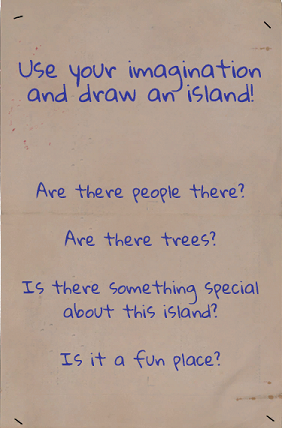 Use your imagination
and draw an island!
Are there people there?
Are there trees?
Is there something special
about this island?
Is it a fun place?